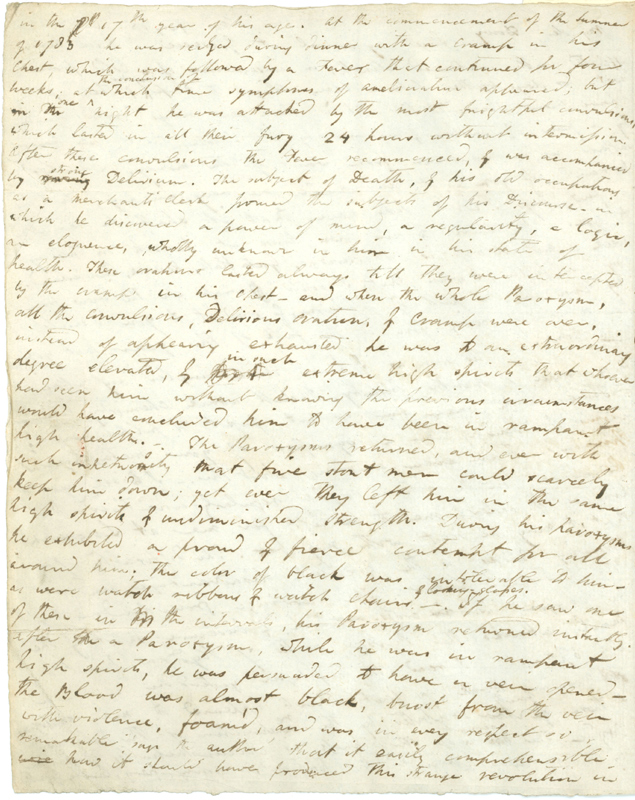 in the 17th year of his age. at the commencement of the Summer
of 1783 he was seized during dinner with a cramp in his
Chest, which was followed by a Fever that continued for four
weeks; at the conclusion of which time symptoms of amelioration appeared; but
one night he was attacked by the most frightful convulsions,
which lasted in all their fury 24 hours without intermission.
After these convulsions the Fever recommenced, & was accompanied
by strong Delirium. The subject of Death, & his old occupations
as a merchant's clerk formed the subjects of his Discourse - in
which he discovered a power of mind, a regularity, a logic,
an eloquence, wholly unknown in him in his state of
health. These orations lasted always till they were intercepted
by the cramp in his chest - and when the whole Paroxysm,
all the convulsions, Delirious oration, & cramp were over,
instead of appearing exhausted he was to an extraordinary
degree elevated, & in such extreme high spirits that whoever
had seen him without knowing the previous circumstances
would have concluded him to have been in rampant
high health. - The Paroxysms returned, and ever with
such impetuosity that five stout men could scarcely
keep him down; yet ever they left him in the same
high spirits & undiminished strength. During his Paroxysms
he exhibited a proud & fierce contempt for all
around him. The color of black was intolerable to him -
as were watch ribbons & watch chains -. If he saw one
of these in the intervals, his Paroxysm returned instantly.
After a Paroxysm, while he was in rampant
high spirits, he was persuaded to have a vein opened -
the Blood was almost black, burst from the vein
with violence, foam'd, and was in every respect so
remarkable, says the author, that it easily comprehensible,
how it should have produced this strange revolution in